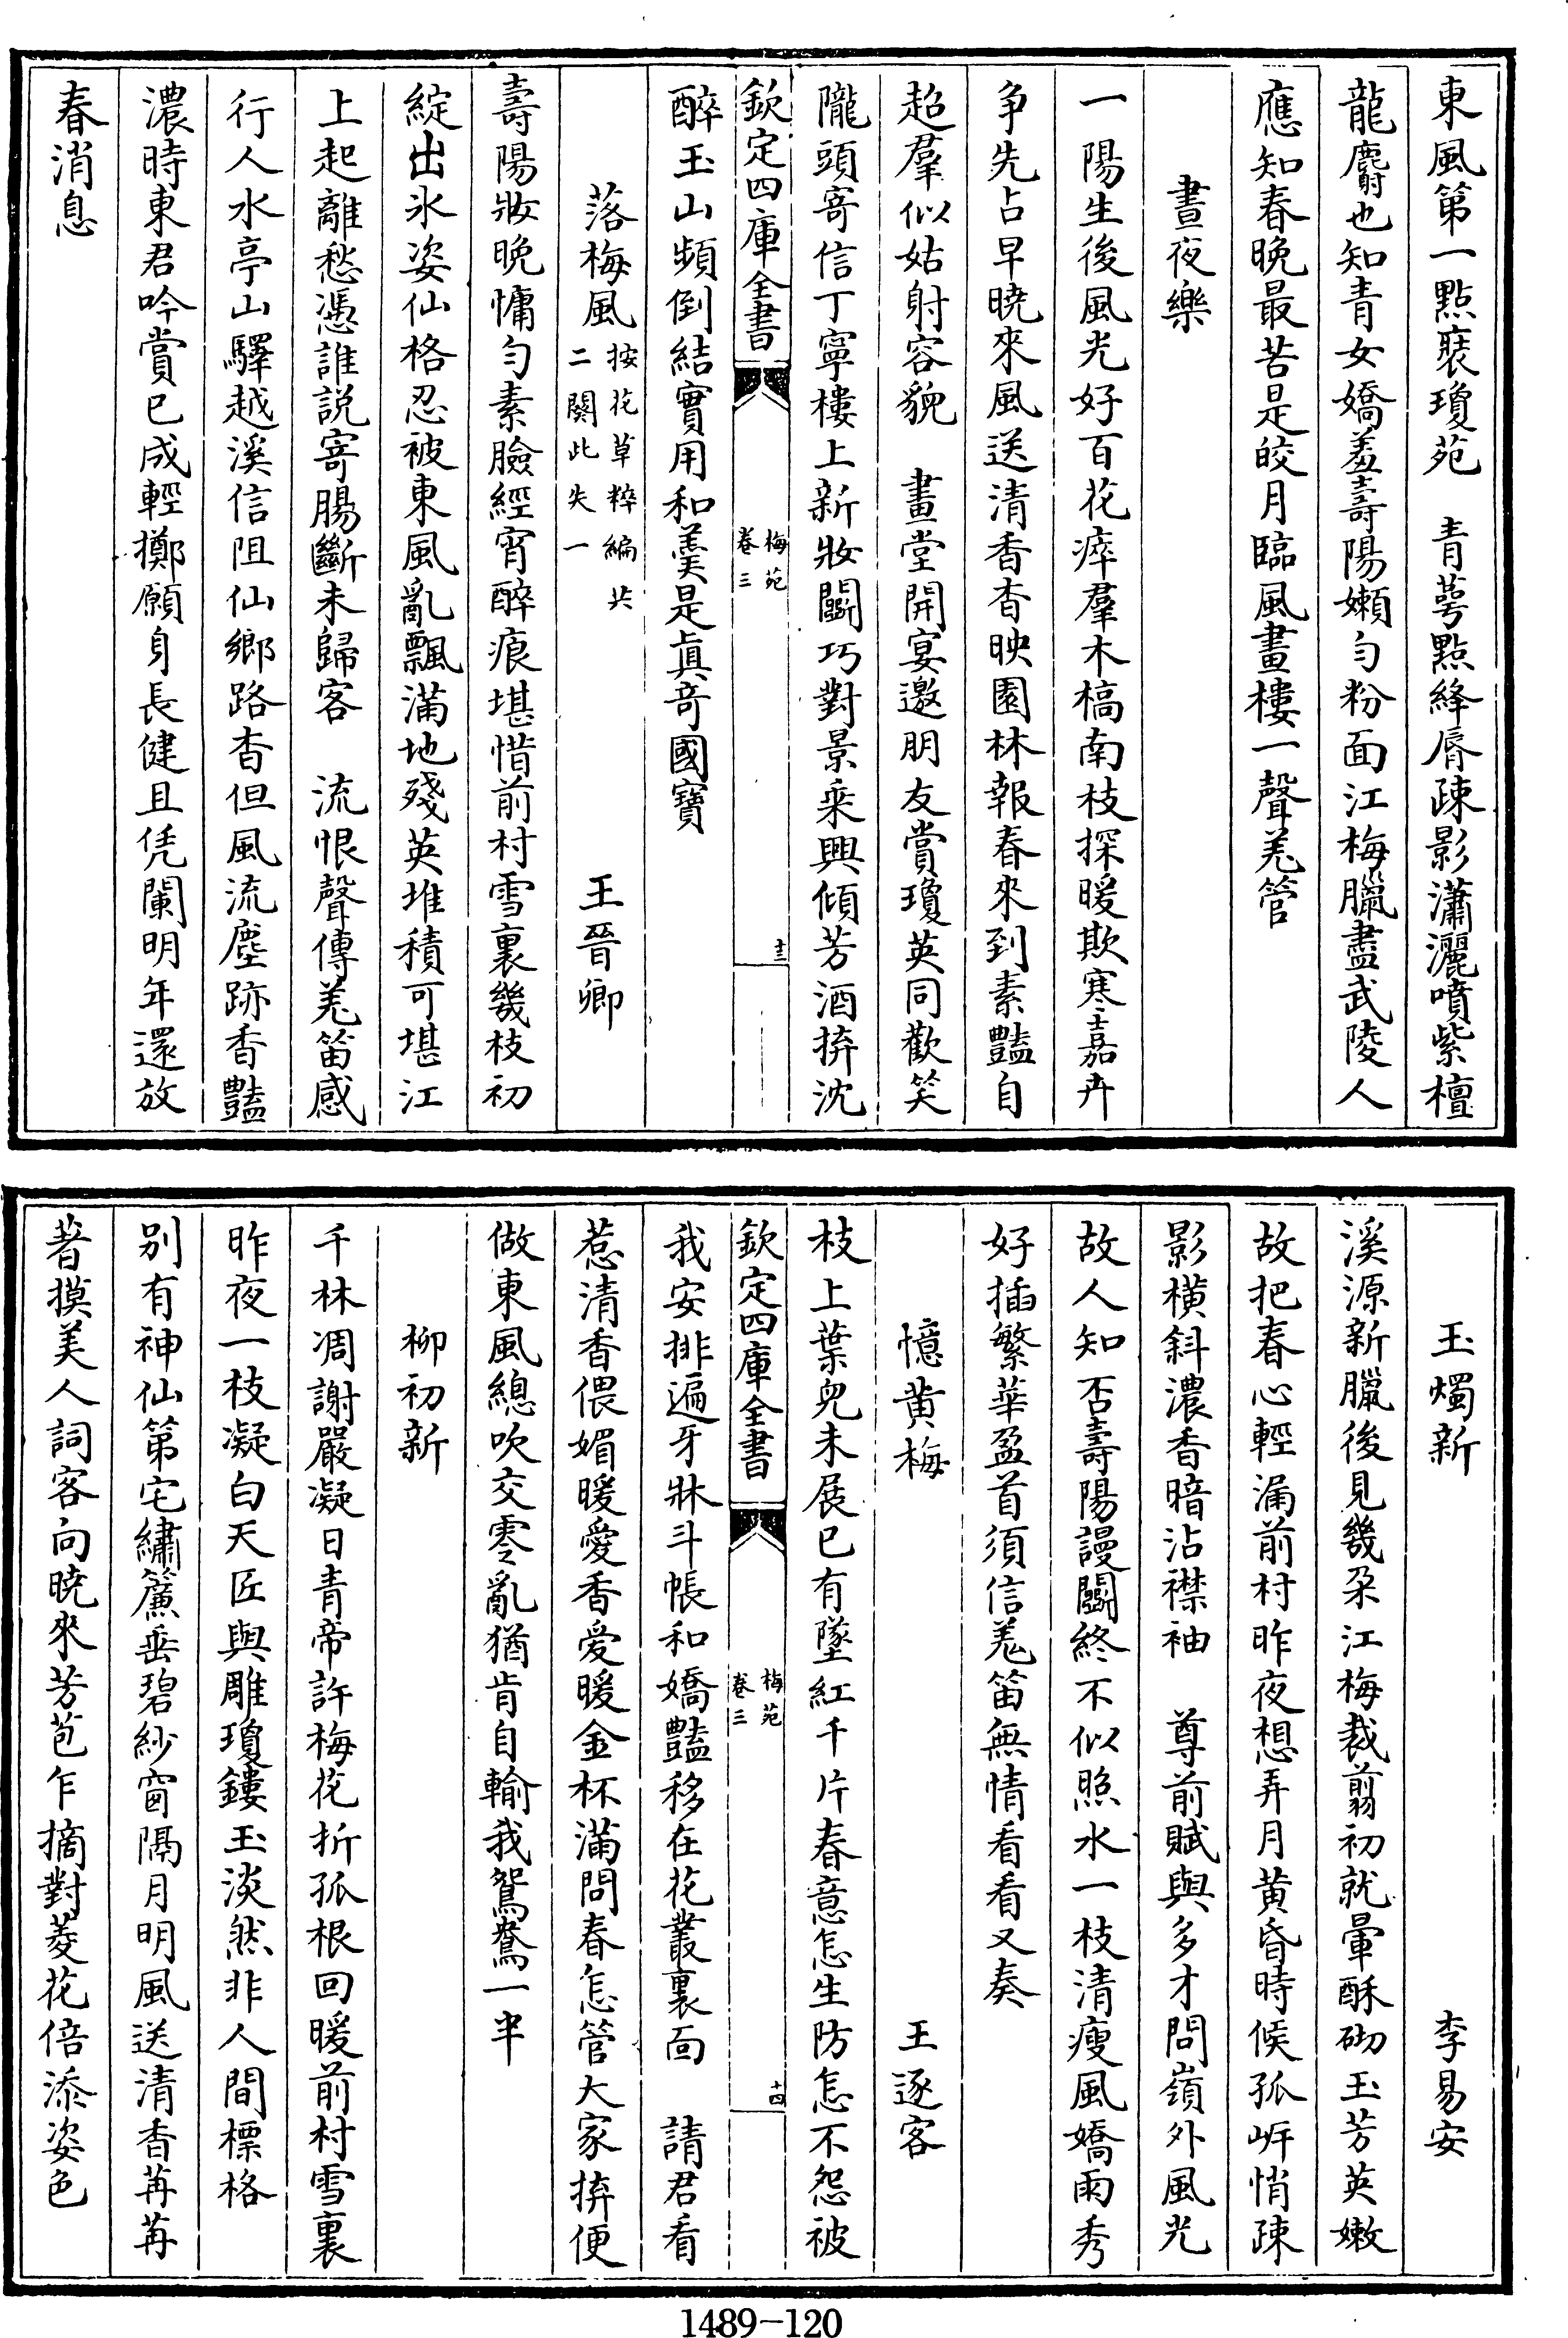 東風第一點裝瓊苑　青萼點絳脣疎影瀟灑噴紫檀
龍麝也知青女嬌羞壽陽嬾勻粉面江梅臘盡武陵人
應知春晚最苦是皎月臨風畫樓一聲羌管
晝夜樂
一陽生後風光好百花瘁羣木槁南枝探暖欺寒嘉卉
争先占早曉來風送清香杳映園林報春來到素豔自
超羣似姑射容貌　畫堂開宴邀朋友賞瓊英同歡笑
隴頭寄信丁寧樓上新妝鬭巧對景乘興傾芳酒拚沈
欽定四庫全書
梅苑
卷三
十三
醉玉山頻倒結實用和羹是真奇國寶
落梅風按花草粹編共二闋此失一　王晉卿
壽陽妝晚慵勻素臉經宵醉痕堪惜前村雪裏幾枝初
綻出氷姿仙格忍被東風亂飄滿地殘英堆積可堪江
上起離愁憑誰説寄腸斷未歸客　流恨聲傳羌笛感
行人水亭山驛越溪信阻仙鄉路杳但風流塵跡香豔
濃時東君吟賞已成輕擲願身長健且凭闌明年還放
春消息
玉燭新　李易安
溪源新臘後見幾朶江梅裁翦初就暈酥砌玉芳英嫩
故把春心輕漏前村昨夜想弄月黄昏時候孤岍悄疎
影橫斜濃香暗沾襟袖　尊前賦與多才問嶺外風光
故人知否壽陽謾鬭終不似照水一枝清瘦風嬌雨秀
好插繁華盈首須信羌笛無情看看又奏
憶黄梅　王逐客
枝上葉兒未展已有墜紅千片春意怎生防怎不怨被
欽定四庫全書
梅苑
卷三
十四
我安排遍牙牀斗帳和嬌豔移在花叢裏面　請君看
惹清香偎媚暖愛香爱暖金杯滿問春怎管大家拚便
做東風總吹交零亂猶肯自輸我鴛鴦一半
柳初新
千林凋謝嚴凝日青帝許梅花折孤根回暖前村雪裏
昨夜一枝凝白天匠與雕瓊鏤玉淡然非人間標格
别有神仙第宅繡簾垂碧紗窗隔月明風送清香苒苒
著摸美人詞客向曉來芳苞乍摘對菱花倍添姿色
1489-120